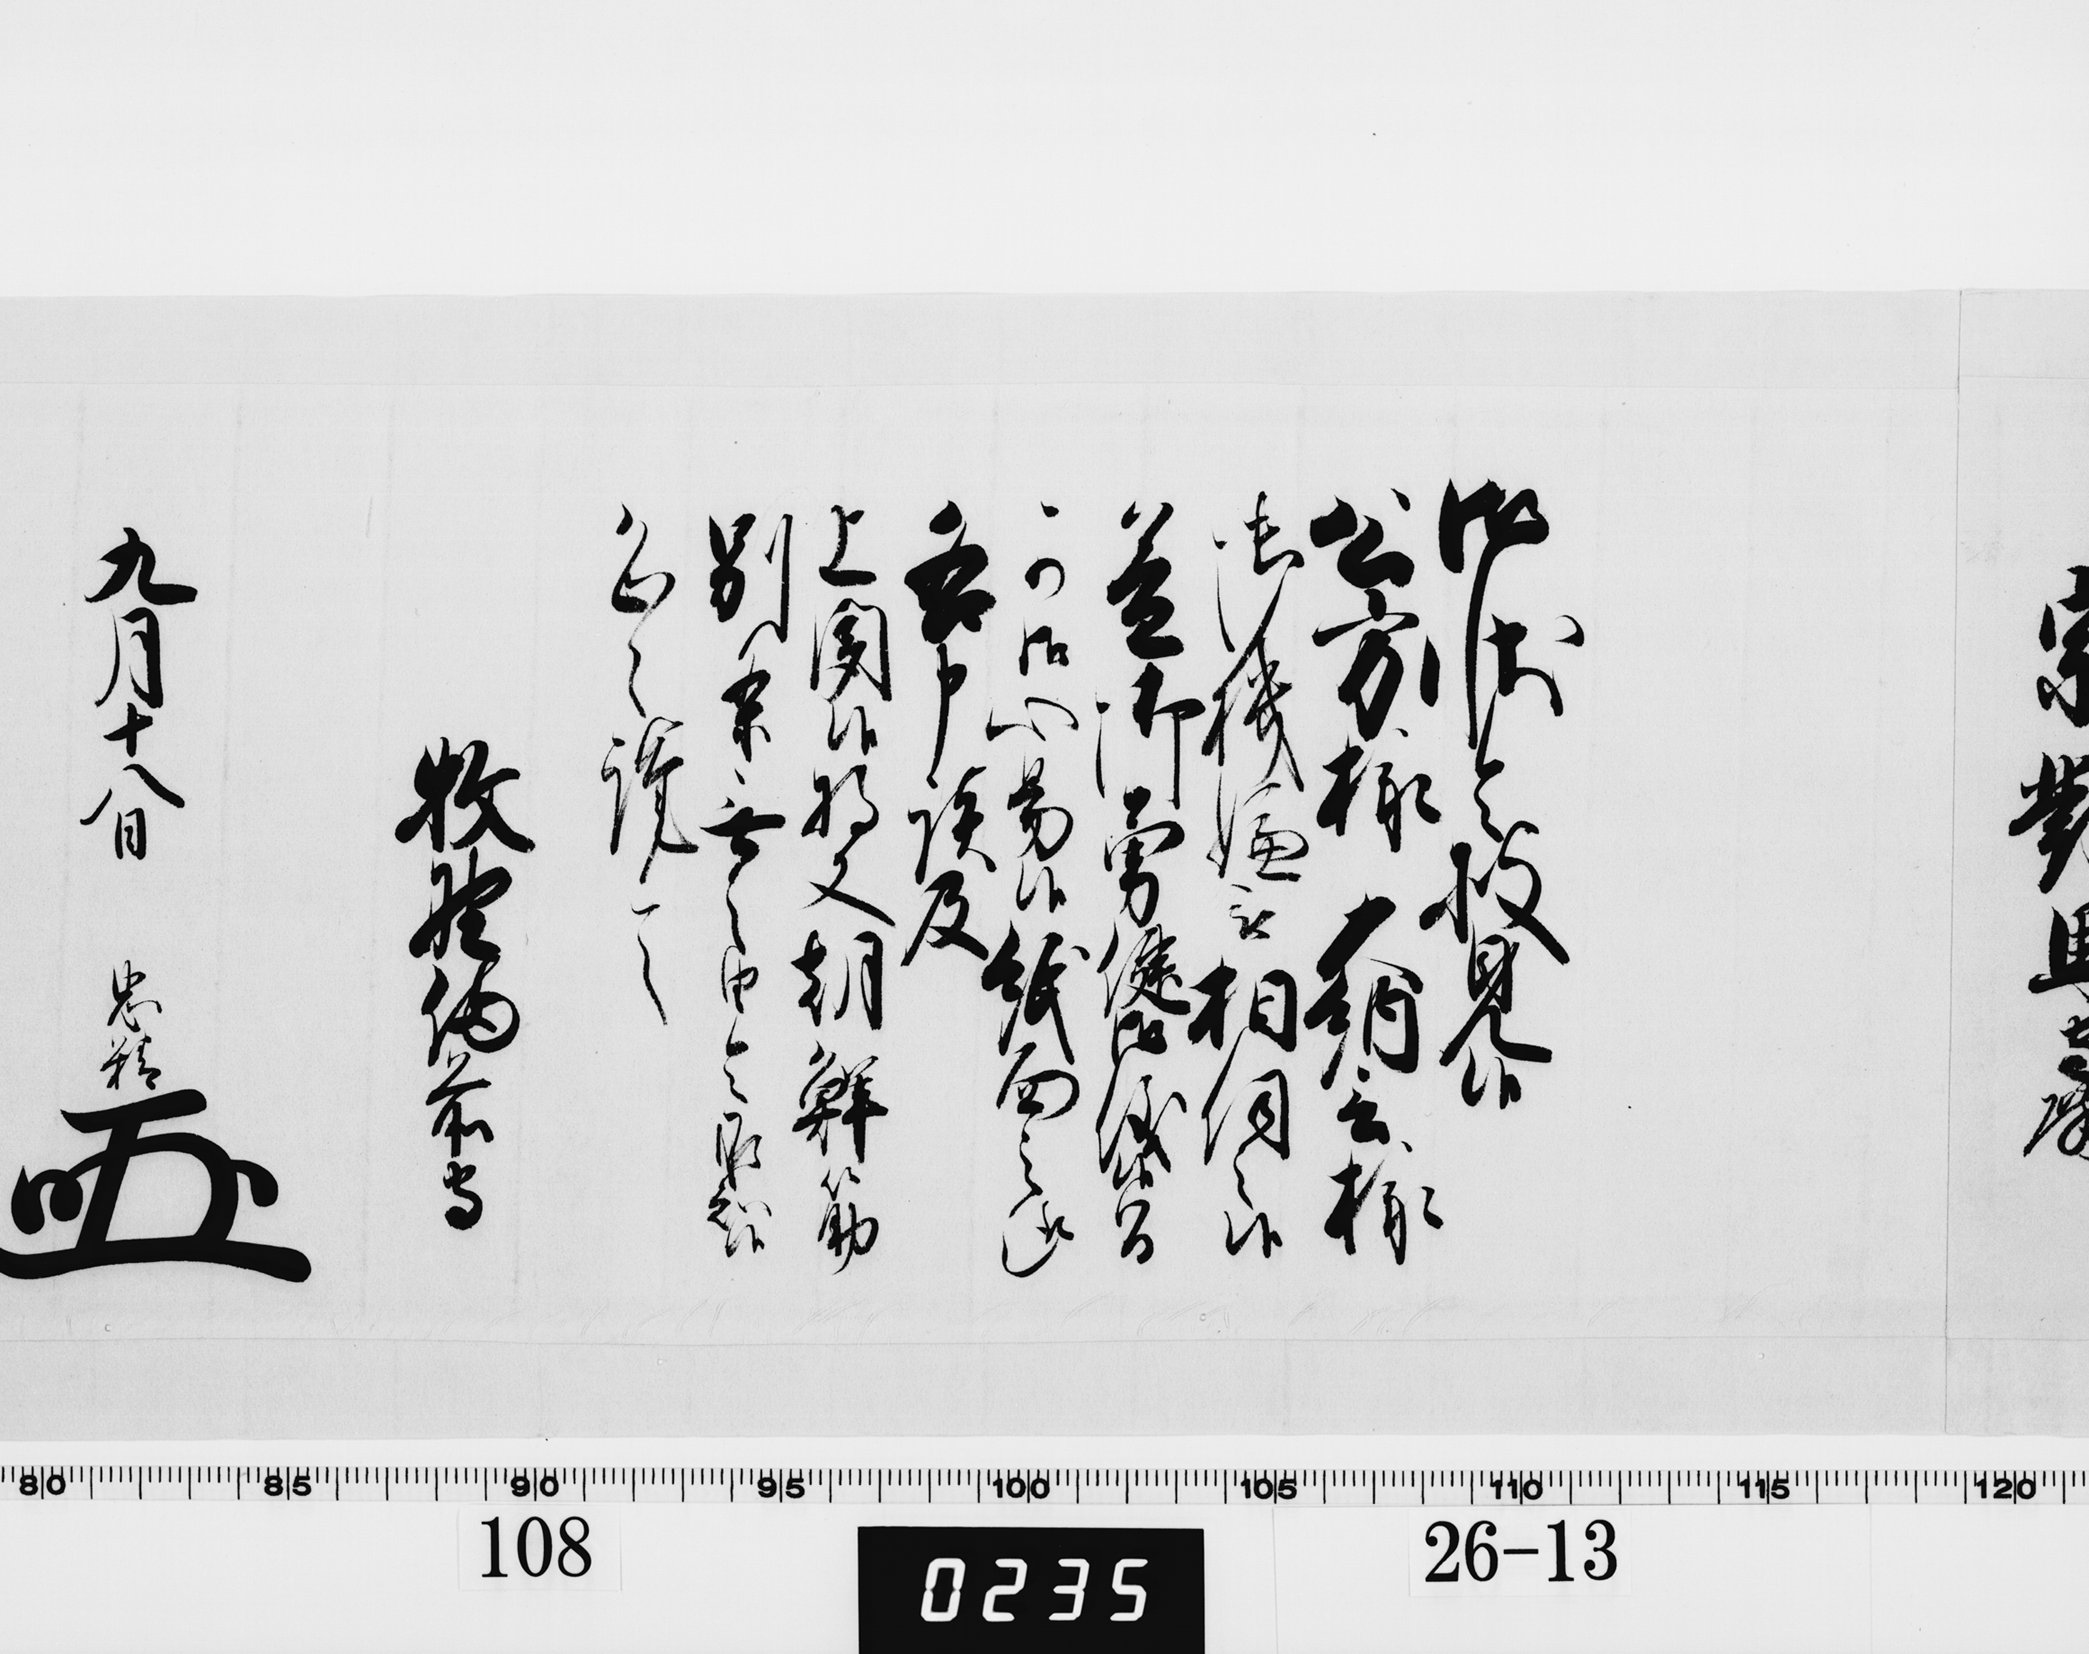 宗對馬守殿
御状令披見候
公方様 大納言様
御機嫌被相伺之候
益御勇健御儀候間
可御心易候紙面之趣
各申談及
上聞候将又朝鮮筋
別条無之由令
恐々謹言
牧野備前守
九月十八日 忠精
80 85 90 95 100 105 110 115 120
108
0235
26-13